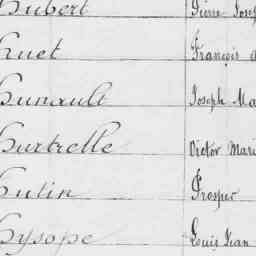 Hubert Pierre Jose
Huet François
Hunault Joseph Ma
Hurtrelle Victor Mari
Hutin Prosper
Hysope Louis Jean